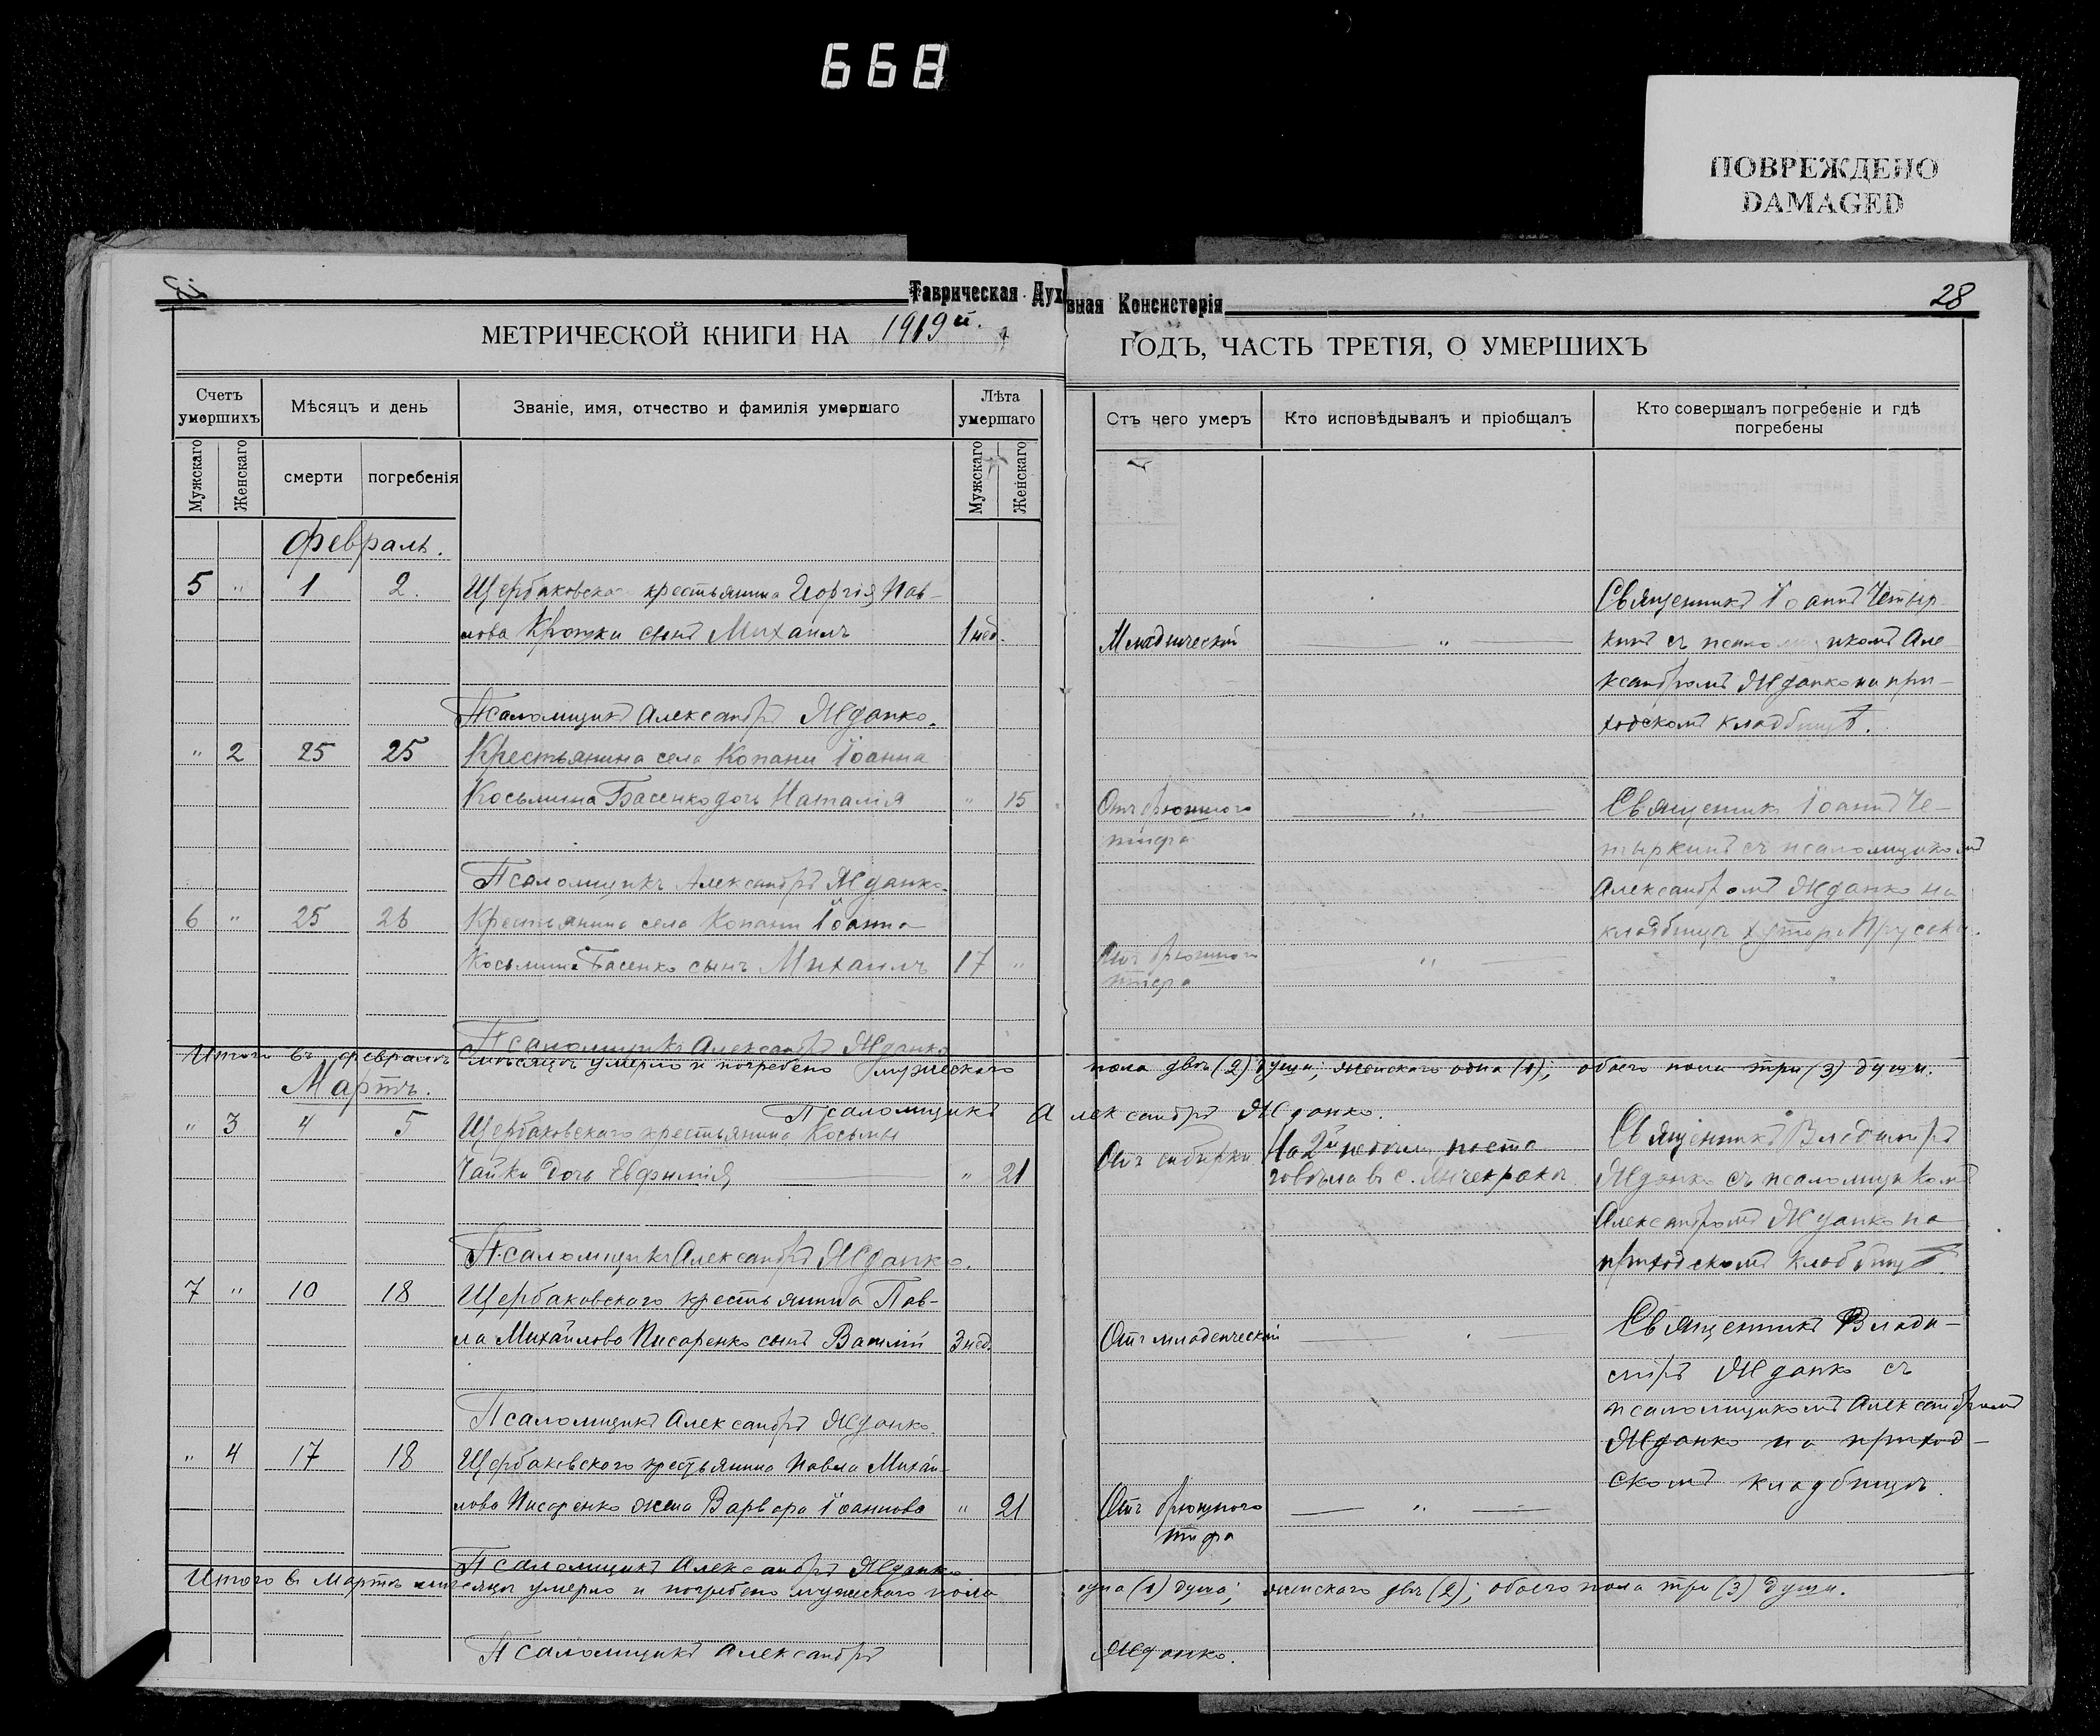 668
ПОВРЕЖДЕНО
DAMAGED
Таврическая Дух вная Консисторія
28
МЕТРИЧЕСКОЙ КНИГИ НА 1919 й. ГОДЪ, ЧАСТЬ ТРЕТІЯ, О УМЕРШИХЪ
Счетъ умершихъ
Мѣсяцъ и день
Званіе, имя, отчество и фамилія умершаго
Лѣта умершаго
Отъ чего умеръ
Кто исповѣдывалъ и пріобщалъ
Кто совершалъ погребеніе и гдѣ погребены
Мужскаго
Женскаго
смерти
погребенія
Мужскаго
Женскаго
Февраль.
5 " 1 2. Щербаковска крестьянина Георгія Пав-
лова сынъ Михаилъ 1 нед. Младенческій "
Священникъ Іоаннъ Четыр
кинъ съ псаломщикомъ Але
ксандромъ Жданко на при-
ходскомъ кладбищѣ.
Псаломщикъ Александръ Жданко.
" 2 25 25 Крестьянина села Копани Іоанна
Косьмина Басенко дочь Наталія " 15 Отъ брюшного "
тифа
Священникъ Іоаннъ Че-
тыркинъ съ псаломщикомъ
Александромъ Жданко на
кладбищѣ
Псаломщикъ Александръ Жданко.
6 " 25 26 Крестьянина села Копани Іоанна
Косьмина Басенко сынъ Михаилъ 17 " Отъ брюшного "
тифа
Псаломщикъ Александръ Жданко
Итого въ февралѣ мѣсяцѣ умерло и погребено мужескаго пола двѣ (2) души; женскаго одна (1); обоего пола три (3) души.
Мартъ.
Псаломщикъ Александръ Жданко.
" 3 4 5 Щербаковскаго крестьянина Косьмы
Чайки дочь Евфимія " 21 Отъ
На 2й недели поста
говѣла в с. Янчекракъ
Священникъ Владиміръ
Жданко съ псаломщикомъ
Александромъ Жданко на
приходскомъ кладбищѣ.
Псаломщикъ Александръ Жданко.
7 " 10 18 Щербаковскаго крестьянина Пав-
ла Михайлова Писаренко сынъ Василій 3 нед. Отъ младенческій
Священникъ Влади-
міръ Жданко съ
псаломщикомъ Александромъ
Жданко на приход-
скомъ кладбищѣ.
Псаломщикъ Александръ Жданко
" 4 17 18 Щербаковскаго крестьянина Павла Михаи-
лова Писаренко жена Варвара Іоаннова " 21 Отъ брюшного "
тифа
Псаломщикъ Александръ Жданко
Итого въ Мартѣ мѣсяцѣ умерло и погребено мужескаго пола одна (1) душа; женскаго двѣ (2); обоего пола три (3) души.
Псаломщикъ Александръ Жданко.